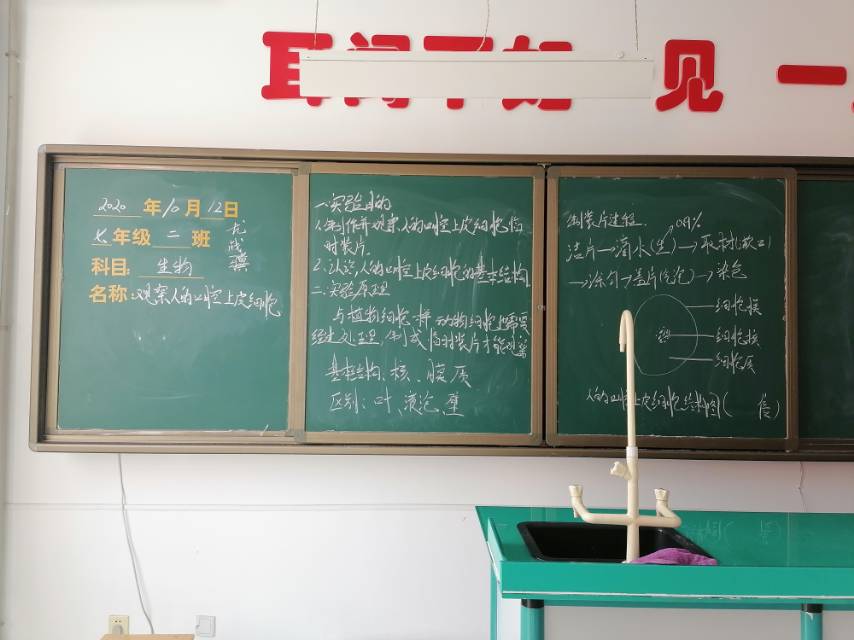 耳闻不如 见 一
2020 年 10 月 12 日
七 年级 二 班
科目: 生物
名称: 观察人的口腔上皮细胞
一.实验目的
1.制作并观察人的口腔上皮细胞临
时装片.
2.认识人的口腔上皮细胞的基本结构
二.实验原理
与植物细胞一样,动物细胞也需要
经过处理,制成临时装片才能观察
基本结构、核、膜、质
区别:叶、液泡、壁
制装片过程.
0.9%
洁片→滴水(生)→取材(漱口)
→涂匀→盖片(气泡)→染色
细胞膜
细胞核
细胞质
人的口腔上皮细胞结构图( 倍)